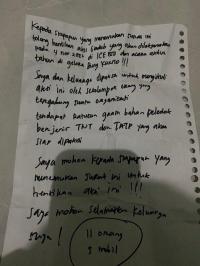 Kepada siapapun yang menemukan surat ini
tolong hentikan aksi bom bunuh yang akan dilaksanakan
pada di ICE BSD dan acara
tahun di gelora Bung Karno !!!
Saya dan keluarga dipaksa untuk mengikuti
aksi ini oleh sekelompok orang yang
tergabung suatu organisasi
terdapat ratusan gram bahan peledak
berjenis TNT dan TATP yang akan
siap dipakai
Saya mohon kepada siapapun yang
menemukan surat ini untuk
hentikan aksi ini !!!
Saya mohon selamatkan keluarga
saya !
11 orang
3 mobil